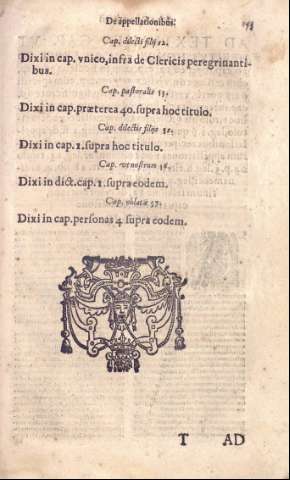 De appellationibus.
Cap. dilecti filij 52.
Dixi in cap. vnico, infra de Clericis peregrinanti-
bus.
Cap. pastoralis 53.
Dixi in cap. præterea 40. supra hoc titulo.
Cap. dilectis filijs
Dixi in cap. 1. supra hoc titulo.
Cap.
Dixi in dict. cap. 1. supra eodem.
Cap. oblatæ 57.
Dixi in cap. personas 4 supra eodem.
T AD